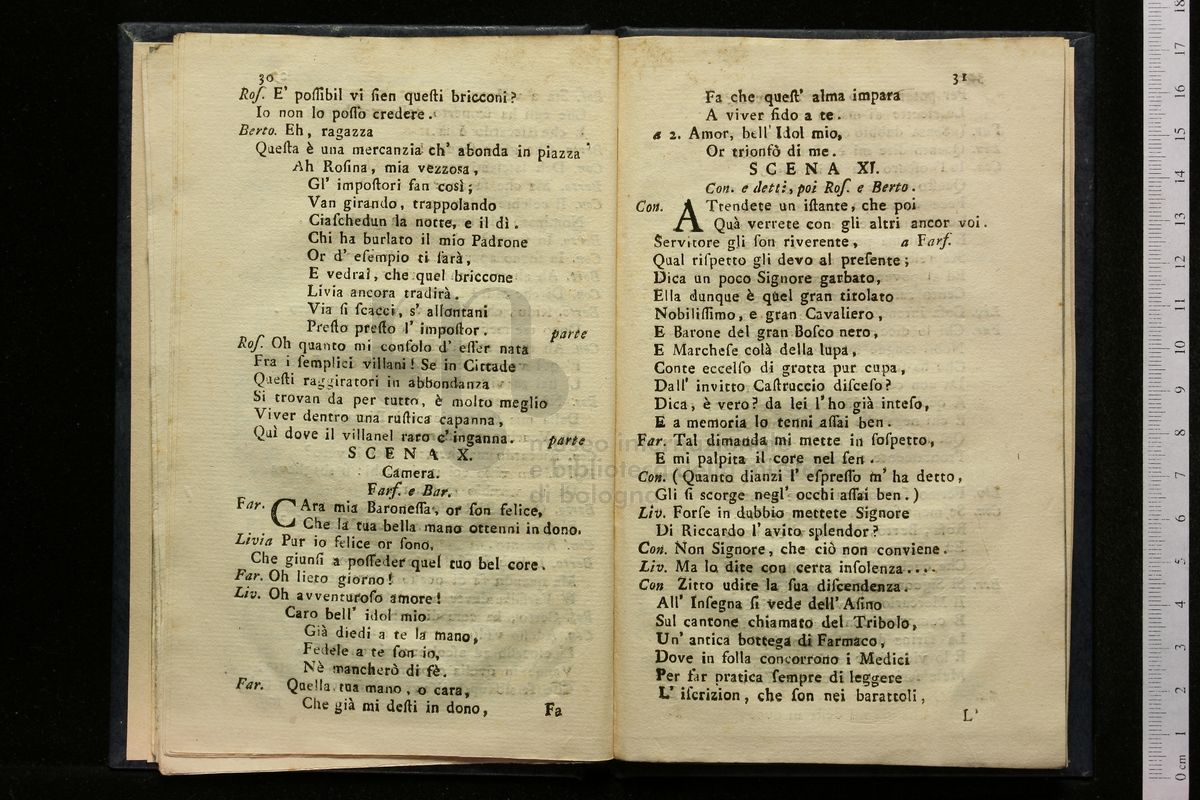 30
Roſ. E' poſſibil vi ſien queſti bricconi?
Io non lo poſſo credere.
Berto. Eh, ragazza
Queſta è una mercanzia ch' abonda in piazza
Ah Roſina, mia vezzoſa,
Gl' impoſtori fan così;
Van girando, trappolando
Ciaſchedun la notte, e il dì.
Chi ha burlato il mio Padrone
Or d' eſempio ti ſarà,
E vedrai, che quel briccone
Livia ancora tradirà.
Via ſi ſcacci, s' allontani
Preſto preſto l' impoſtor. parte
Roſ. Oh quanto mi conſolo d' eſſer nata
Fra i ſemplici villani! Se in Cittade
Queſti raggiratori in abbondanza
Si trovan da per tutto, è molto meglio
Viver dentro una ruſtica capanna,
Quì dove il villanel raro c' inganna. parte
SCENA X.
Camera.
Farſ. e Bar.
Far. CAra mia Baroneſſa, or ſon felice,
Che la tua bella mano ottenni in dono.
Livia Pur io felice or ſono,
Che giunſi a poſſeder quel tuo bel core.
Far. Oh lieto giorno!
Liv. Oh avventuroſo amore!
Caro bell' idol mio
Già diedi a te la mano,
Fedele a te ſon io,
Nè mancherò di fè.
Far. Quella tua mano, o cara,
Che già mi deſti in dono,
Fa
31
Fa che queſt' alma impara
A viver fido a te.
a 2. Amor, bell' Idol mio,
Or trionfò di me.
SCENA XI.
Con. e detti, poi Roſ. e Berto.
Con. ATtendete un iſtante, che poi
Quà verrete con gli altri ancor voi.
Servitore gli ſon riverente, a Farſ.
Qual riſpetto gli devo al preſente;
Dica un poco Signore garbato,
Ella dunque è quel gran titolato
Nobiliſſimo, e gran Cavaliero,
E Barone del gran Boſco nero,
E Marcheſe colà della lupa,
Conte eccelſo di grotta pur cupa,
Dall' invitto Caſtruccio diſceſo?
Dica, è vero? da lei l'ho già inteſo,
E a memoria lo tenni aſſai ben.
Far. Tal dimanda mi mette in ſoſpetto,
E mi palpita il core nel ſen.
Con. (Quanto dianzi l' eſpreſſo m' ha detto,
Gli ſi ſcorge negl' occhi aſſai ben.)
Liv. Forſe in dubbio mettete Signore
Di Riccardo l'avito splendor?
Con. Non Signore, che ciò non conviene.
Liv. Ma lo dite con certa inſolenza....
Con Zitto udite la ſua diſcendenza.
All' Inſegna ſi vede dell' Aſino
Sul cantone chiamato del Tribolo,
Un' antica bottega di Farmaco,
Dove in folla concorrono i Medici
Per far pratica ſempre di leggere
L' iſcrizion, che ſon nei barattoli,
L'